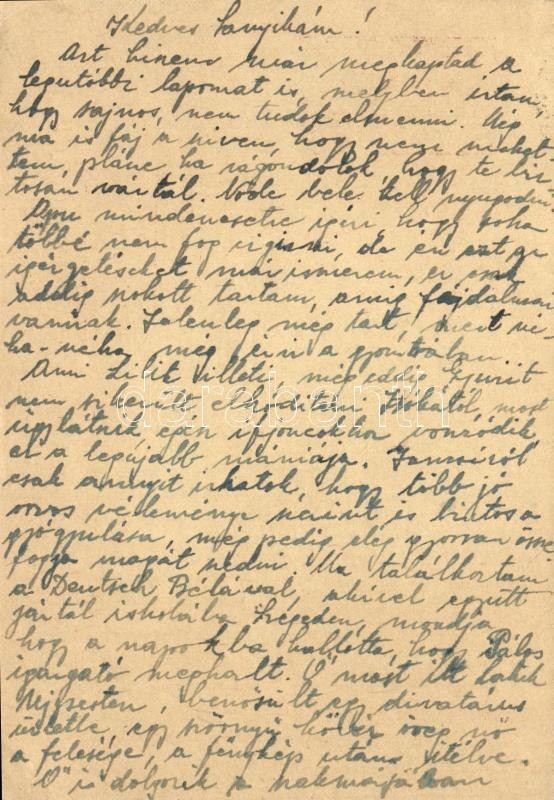 Kedves Sanyikám!
Azt hiszem már megkaptad a
legutóbbi lapomat is, melyben írtam,
hogy sajnos, nem tudok elmenni. Még
ma is fáj a szívem, hogy nem mehet-
tem, pláne ha rágondolok, hogy te biz-
tosan vártál. No de bele kell nyugodni.
Apu mindenesetre ígéri, hogy soha
többé nem fog inni, de én ezt az
ígérgetéseket már ismerem, ez csak
addig szokott tartani, amíg fájdalmai
vannak. Jelenleg még tart, mert né-
ha-néha még érzi a gyomrában.
Ami Lilit illeti, még eddig
nem sikerült elhódítani, most
úgy látszik épen ifjoncokhoz vonzódik,
ez a legújabb mániája.
csak annyit írhatok, hogy több jó
orvos véleménye szerint is biztos a
gyógyulása, még pedig elég gyorsan össze
fogja magát szedni. Ma találkoztam
a Deutsch Bélával, akivel együtt
jártál iskolába Szegeden, mondja
hogy a napokba hallotta, hogy Pálos
igazgató meghalt. Ő most itt lakik
Újpesten, benősült egy divatárus
üzletbe, egy szörnyű kövér öreg nő
a felesége, a fénykép után ítélve.
Ő is dolgozik a szakmájában
darabanth